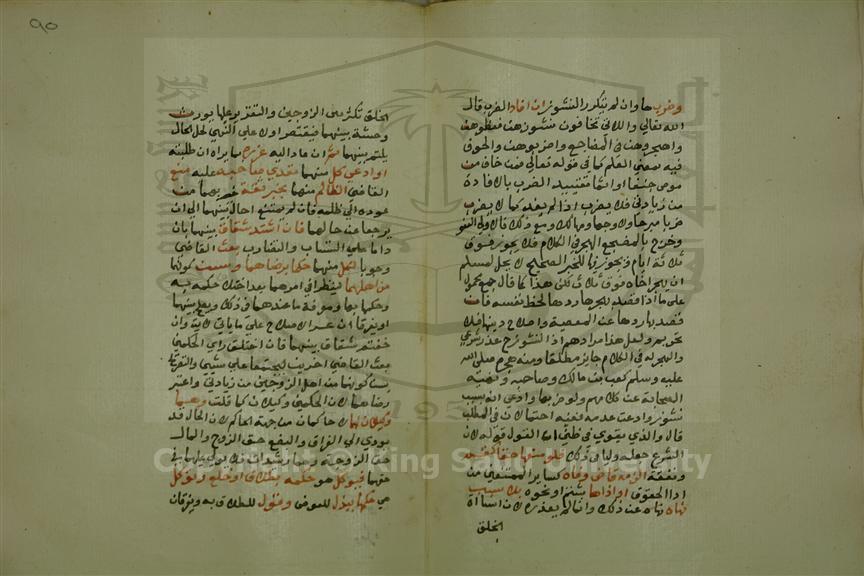 وضربها وان لم يتكرر النشوز ان افاد الضرب قال
الله تعالي واللاتي تخافون نشوزهن فعظوهن
واهجروهن في المضاجع واضربوهن والخوف
فيه بمعني العلم كما في قوله تعالي فمن خاف من
موص جنفا او اثما وتقييد الضرب بالافادة
من زيادتي فلا يضرب اذا لم يفد كما لا يضرب
ضربا مبرحا ولا وجها ومهالك ومع ذلك فالاولي العفو
وخرج بالمضجع الهجر في الكلام فلا يجوز فوق
ثلاثة ايام ويجوز فيها للخبر الصحيح لا يحل لمسلم
ان يهجر اخاه فوق ثلاث لكن هذا كما قال جمع محمول
علي ما اذا قصد بهجرها ردها لحظ نفسه فان
قصد به ردها عن المعصية واصلاح دينها فلا
تحريم ولعل هذا مرادهم اذ النشوز ح عذر شرعي
والهجر له في الكلام جايز مطلقا ومنه هجره صلي الله
عليه وسلم كعب بن مالك وصاحبيه ونهيه
الصحابة عن كلامهم ولو ضربها وادعي انه بسبب
نشوز وادعت عدمه ففيه احتمالان في المطلب
قال والذي يقوي في ظني ان القول قوله لان
الشرع جعله وليا في ذلك فلو منعها حقا كقسم
ونفقة الزمه قاض وفاه كساير الممتنعين من
ادا الحقوق او اذاها بشتم او نحوه بلا سبب
نهاه نهاه عن ذلك وانما لم يعذره لان اساة
الخلق
٩٥
الخلق تكثر بين الزوجين والتعزير عليها يورث
وحشة بينهما فيقتصر اولا علي النهي لعل الحال
يلتئم بينهما ثم ان عاد اليه عزره بما يراه ان طلبته
او ادعي كل منهما تعدي صاحبه عليه منع
القاضي الظالم منهما بخبر ثقة خبير بهما من
عوده الي ظلمه فان لم يمتنع احال بينهما الي ان
يرجعا عن حالهما فان اشتد شقاق بينهما بان
داما علي التساب والتضارب بعث القاضي
وجوبا لكل منهما حكما برضاهما وسن كونهما
من اهلهما لينظر في امرهما بعد اختلاء حكمه به
وحكمها بها ومعرفة ما عندهما في ذلك ويصلح بينهما
او يفرقا ان عسر الاصلاح علي ما ياتي لاية وان
خفتم شقاق بينهما فان اختلف راي الحكمين
بعث القاضي اخرين ليجتمعا علي شيء والتصريح
بسن كونهما من اهل الزوجين من زيادتي واعتبر
رضاهما لان الحكمين وكيلان كما قلت وهما
وكيلان لهما لا حاكمان من جهة الحاكم لان الحال قد
يودي الي الفراق والبضع حق الزوج والمال
حق الزوجة وهما رشيدان فلا يولي عليهما في
حقهما فيوكل هو حكمه بطلاق او خلع وتوكل
هي حكمها ببذل للعوض وقبول للطلاق به ويفرقان